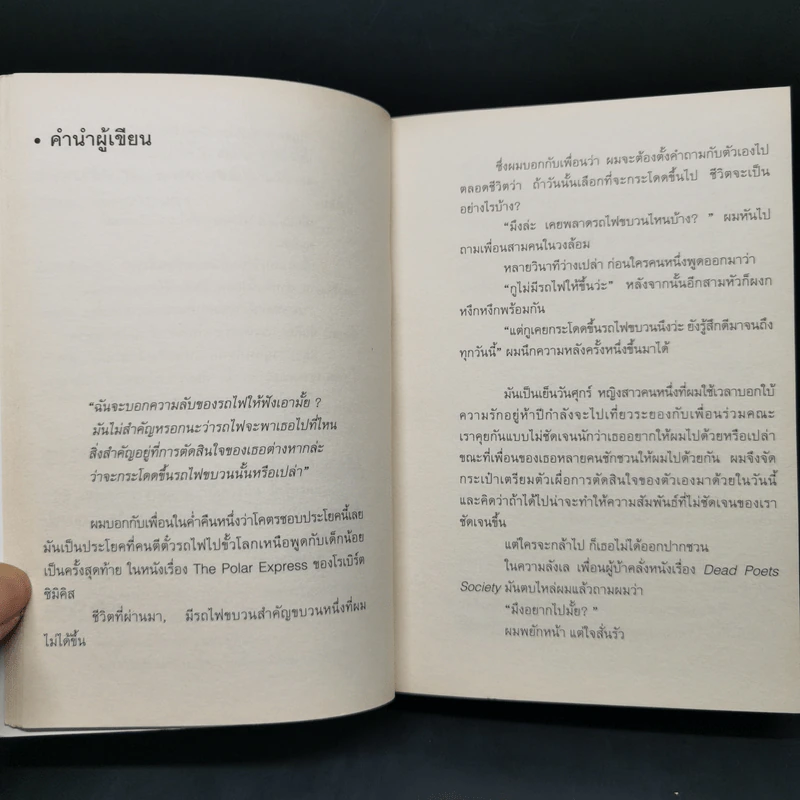 • คำนำผู้เขียน
“ฉันจะบอกความลับของรถไฟให้ฟังเอามั้ย ?
มันไม่สำคัญหรอกนะว่ารถไฟจะพาเธอไปที่ไหน
สิ่งสำคัญอยู่ที่การตัดสินใจของเธอต่างหากล่ะ
ว่าจะกระโดดขึ้นรถไฟขบวนนั้นหรือเปล่า”
ผมบอกกับเพื่อนในค่ำคืนหนึ่งว่าโคตรชอบประโยคนี้เลย
มันเป็นประโยคที่คนตีตั๋วรถไฟไปขั้วโลกเหนือพูดกับเด็กน้อย
เป็นครั้งสุดท้าย ในหนังเรื่อง The Polar Express ของโรเบิร์ต
ซิมิคิส
ชีวิตที่ผ่านมา, มีรถไฟขบวนสำคัญขบวนหนึ่งที่ผม
ไม่ได้ขึ้น
ซึ่งผมบอกกับเพื่อนว่า ผมจะต้องตั้งคำถามกับตัวเองไป
ตลอดชีวิตว่า ถ้าวันนั้นเลือกที่จะกระโดดขึ้นไป ชีวิตจะเป็น
อย่างไรบ้าง?
“มึงล่ะ เคยพลาดรถไฟขบวนไหนบ้าง? ” ผมหันไป
ถามเพื่อนสามคนในวงล้อม
หลายวินาทีว่างเปล่า ก่อนใครคนหนึ่งพูดออกมาว่า
“กูไม่มีรถไฟให้ขึ้นว่ะ” หลังจากนั้นอีกสามหัวก็ผงก
หงึกหงึกพร้อมกัน
“แต่กูเคยกระโดดขึ้นรถไฟขบวนนึงว่ะ ยังรู้สึกดีมาจนถึง
ทุกวันนี้” ผมนึกความหลังครั้งหนึ่งขึ้นมาได้
มันเป็นเย็นวันศุกร์ หญิงสาวคนหนึ่งที่ผมใช้เวลาบอกใบ้
ความรักอยู่ห้าปีกำลังจะไปเที่ยวระยองกับเพื่อนร่วมคณะ
เราคุยกันแบบไม่ชัดเจนนักว่าเธออยากให้ผมไปด้วยหรือเปล่า
ขณะที่เพื่อนของเธอหลายคนชักชวนให้ผมไปด้วยกัน ผมจึงจัด
กระเป๋าเตรียมตัวเผื่อการตัดสินใจของตัวเองมาด้วยในวันนี้
และคิดว่าถ้าได้ไปน่าจะทำให้ความสัมพันธ์ที่ไม่ชัดเจนของเรา
ชัดเจนขึ้น
แต่ใครจะกล้าไป ก็เธอไม่ได้ออกปากชวน
ในความลังเล เพื่อนผู้บ้าคลั่งหนังเรื่อง Dead Poets
Society มันตบไหล่ผมแล้วถามผมว่า
“มึงอยากไปมั้ย? ”
ผมพยักหน้า แต่ใจสั่นรัว